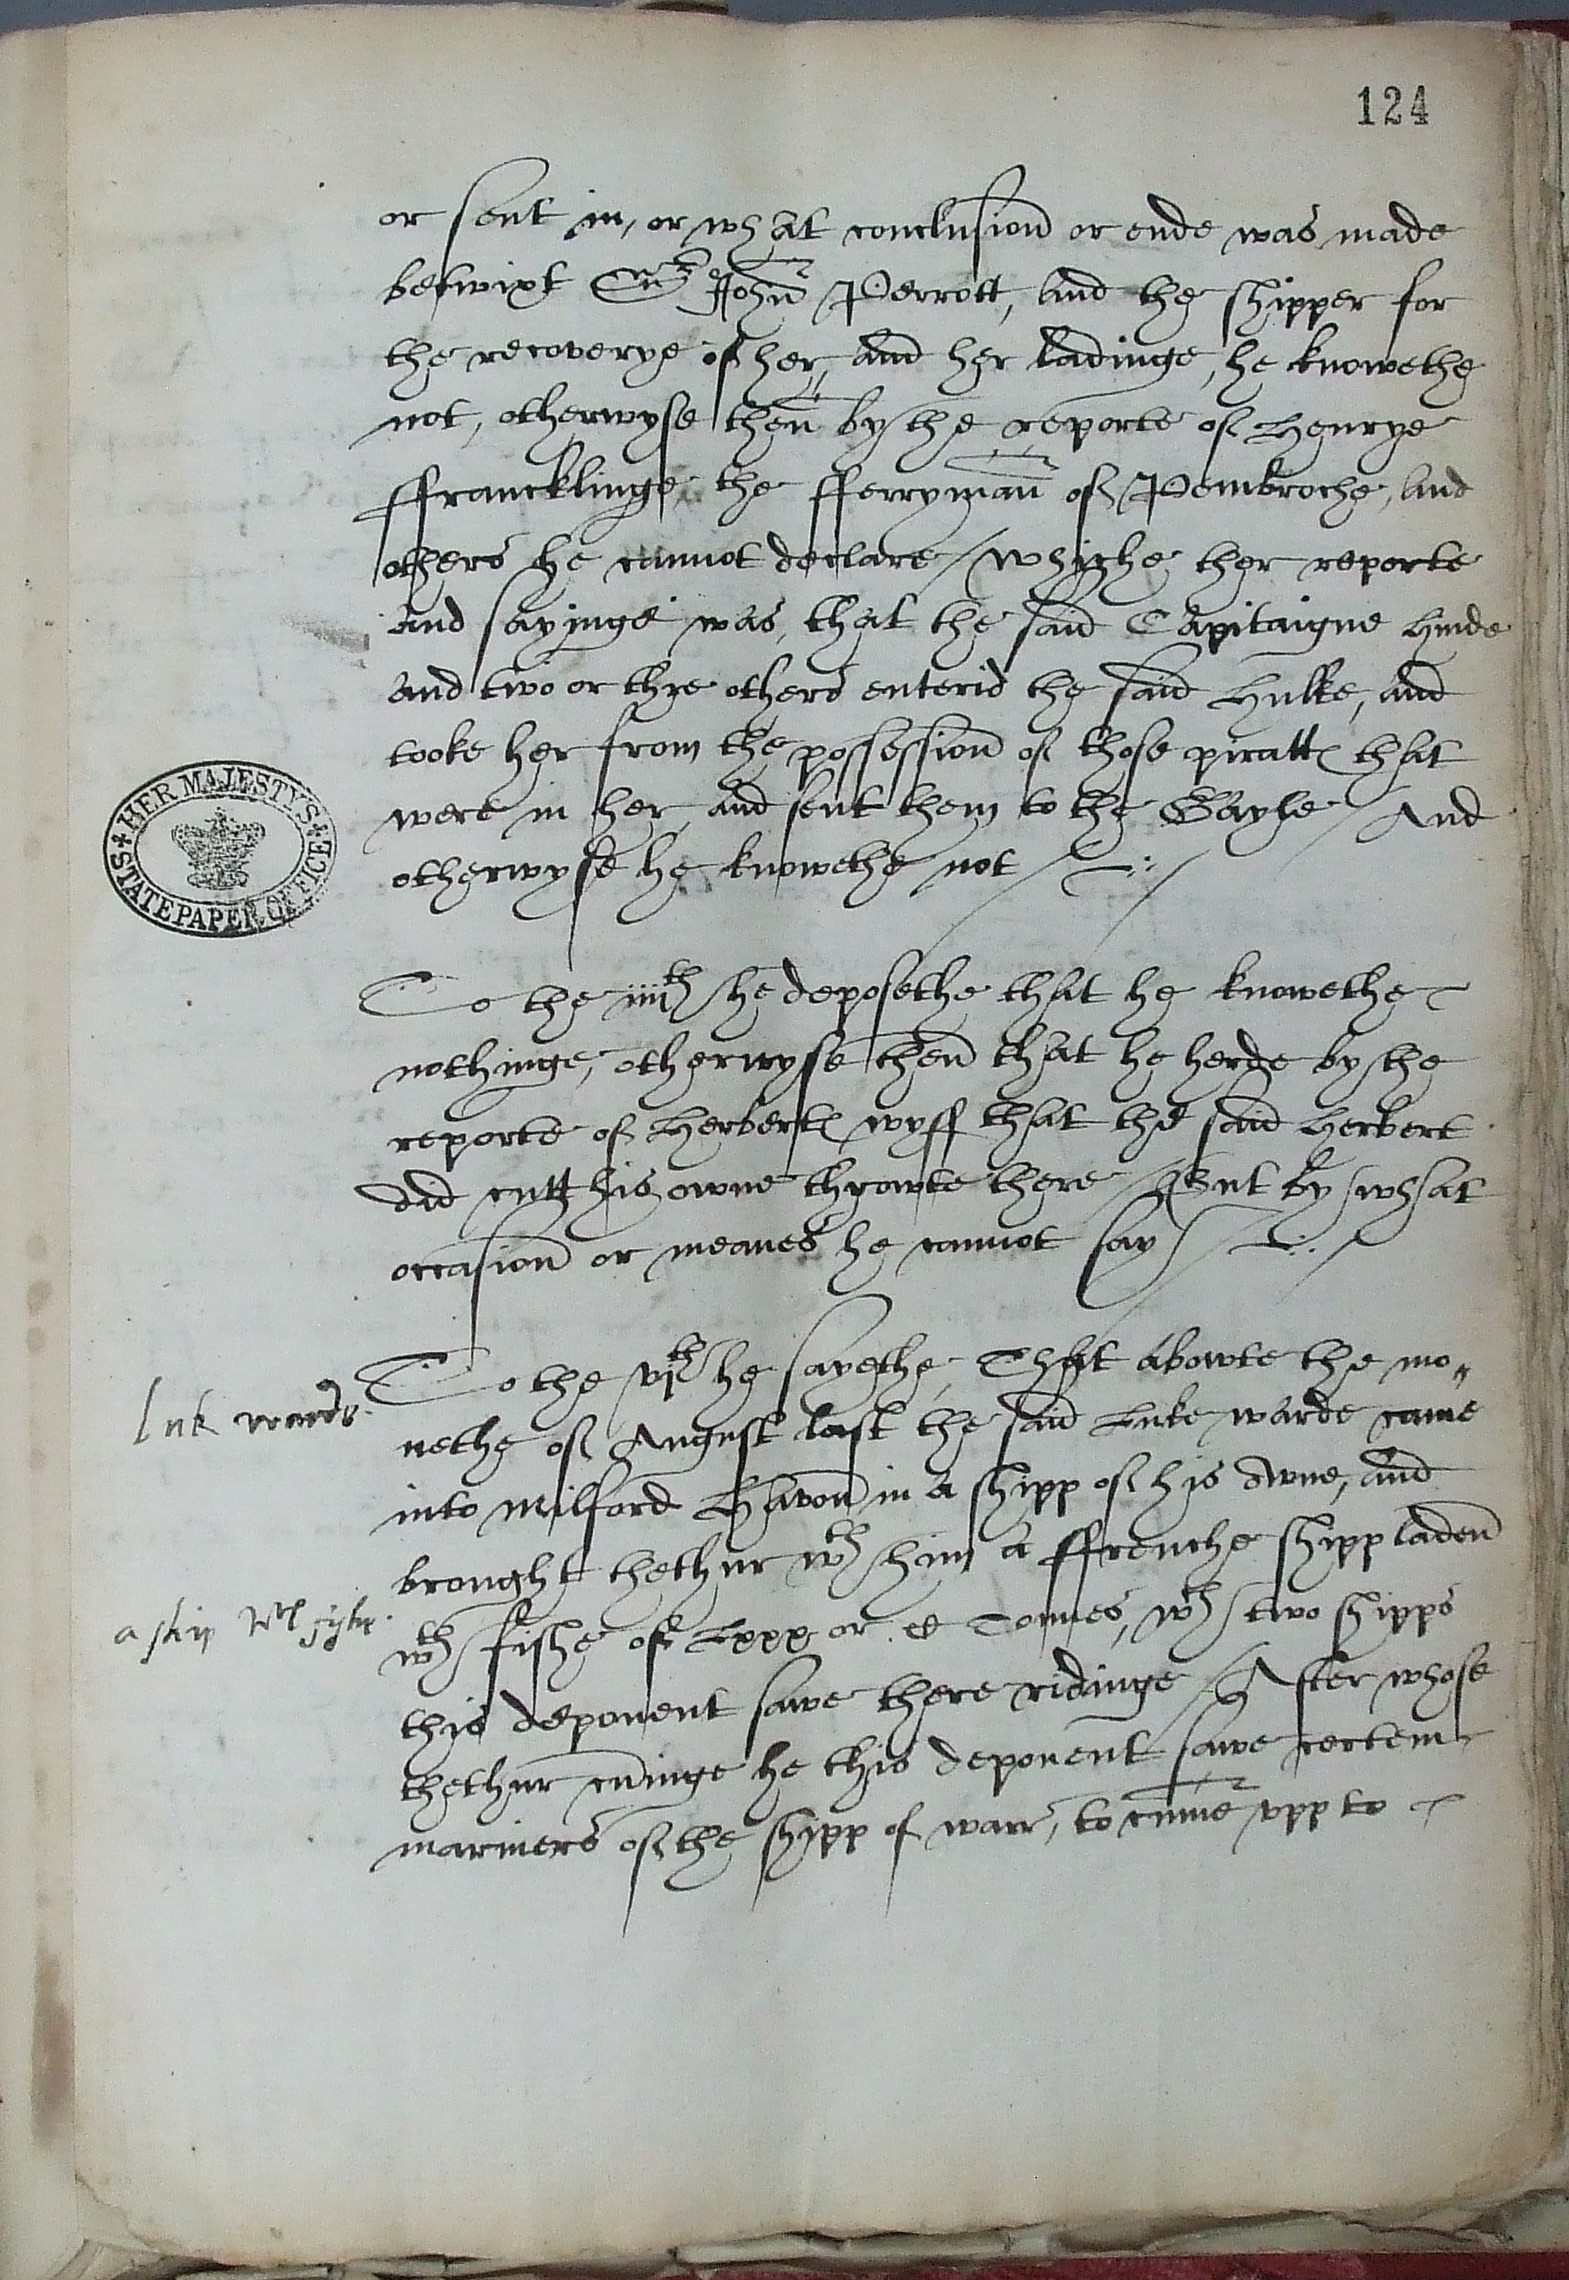 124
or sent in, or what conclusion or ende was made
betwixt Sr John Perrott, and the shipper for
the recoverye of her, and her ladinge, he knowethe
not, otherwyse then by the reporte of Henrye
ffrancklinge the fferryman of Pembroche, and
others he cannot declare / whiche ther reporte
and sayinge was, that the said Capitaigne Hinde
and two or thre others enterid the said Hulke, and
tooke her from the possession of those piratts that
were in her, and sent them to the Gayle / And
otherwyse he knowethe not /
To the iiiith he deposethe that he knowethe
nothinge, otherwyse then that he herde by the
reporte of Herberts wyff that the said Herbert
did cutt his owne throwte there / But by what
occasion or meanes he cannot say /
To the vith he sayethe, That abowte the mo„
Luk wards.
nethe of August last the said Luke warde came
into Milford Havon in a shipp of his owne, and
brought thethur wth him a ffrenche shipp laden
a ship wth fyshe.
wth fishe of Lxxx or C Tonnes, wth two shipps
this deponent sawe there ridinge / After whose
thethur cuminge he this deponent sawe certein
mariners of the shipp of warr, to cume vpp to
HER MAJESTY'S
STATE PAPER OFFICE